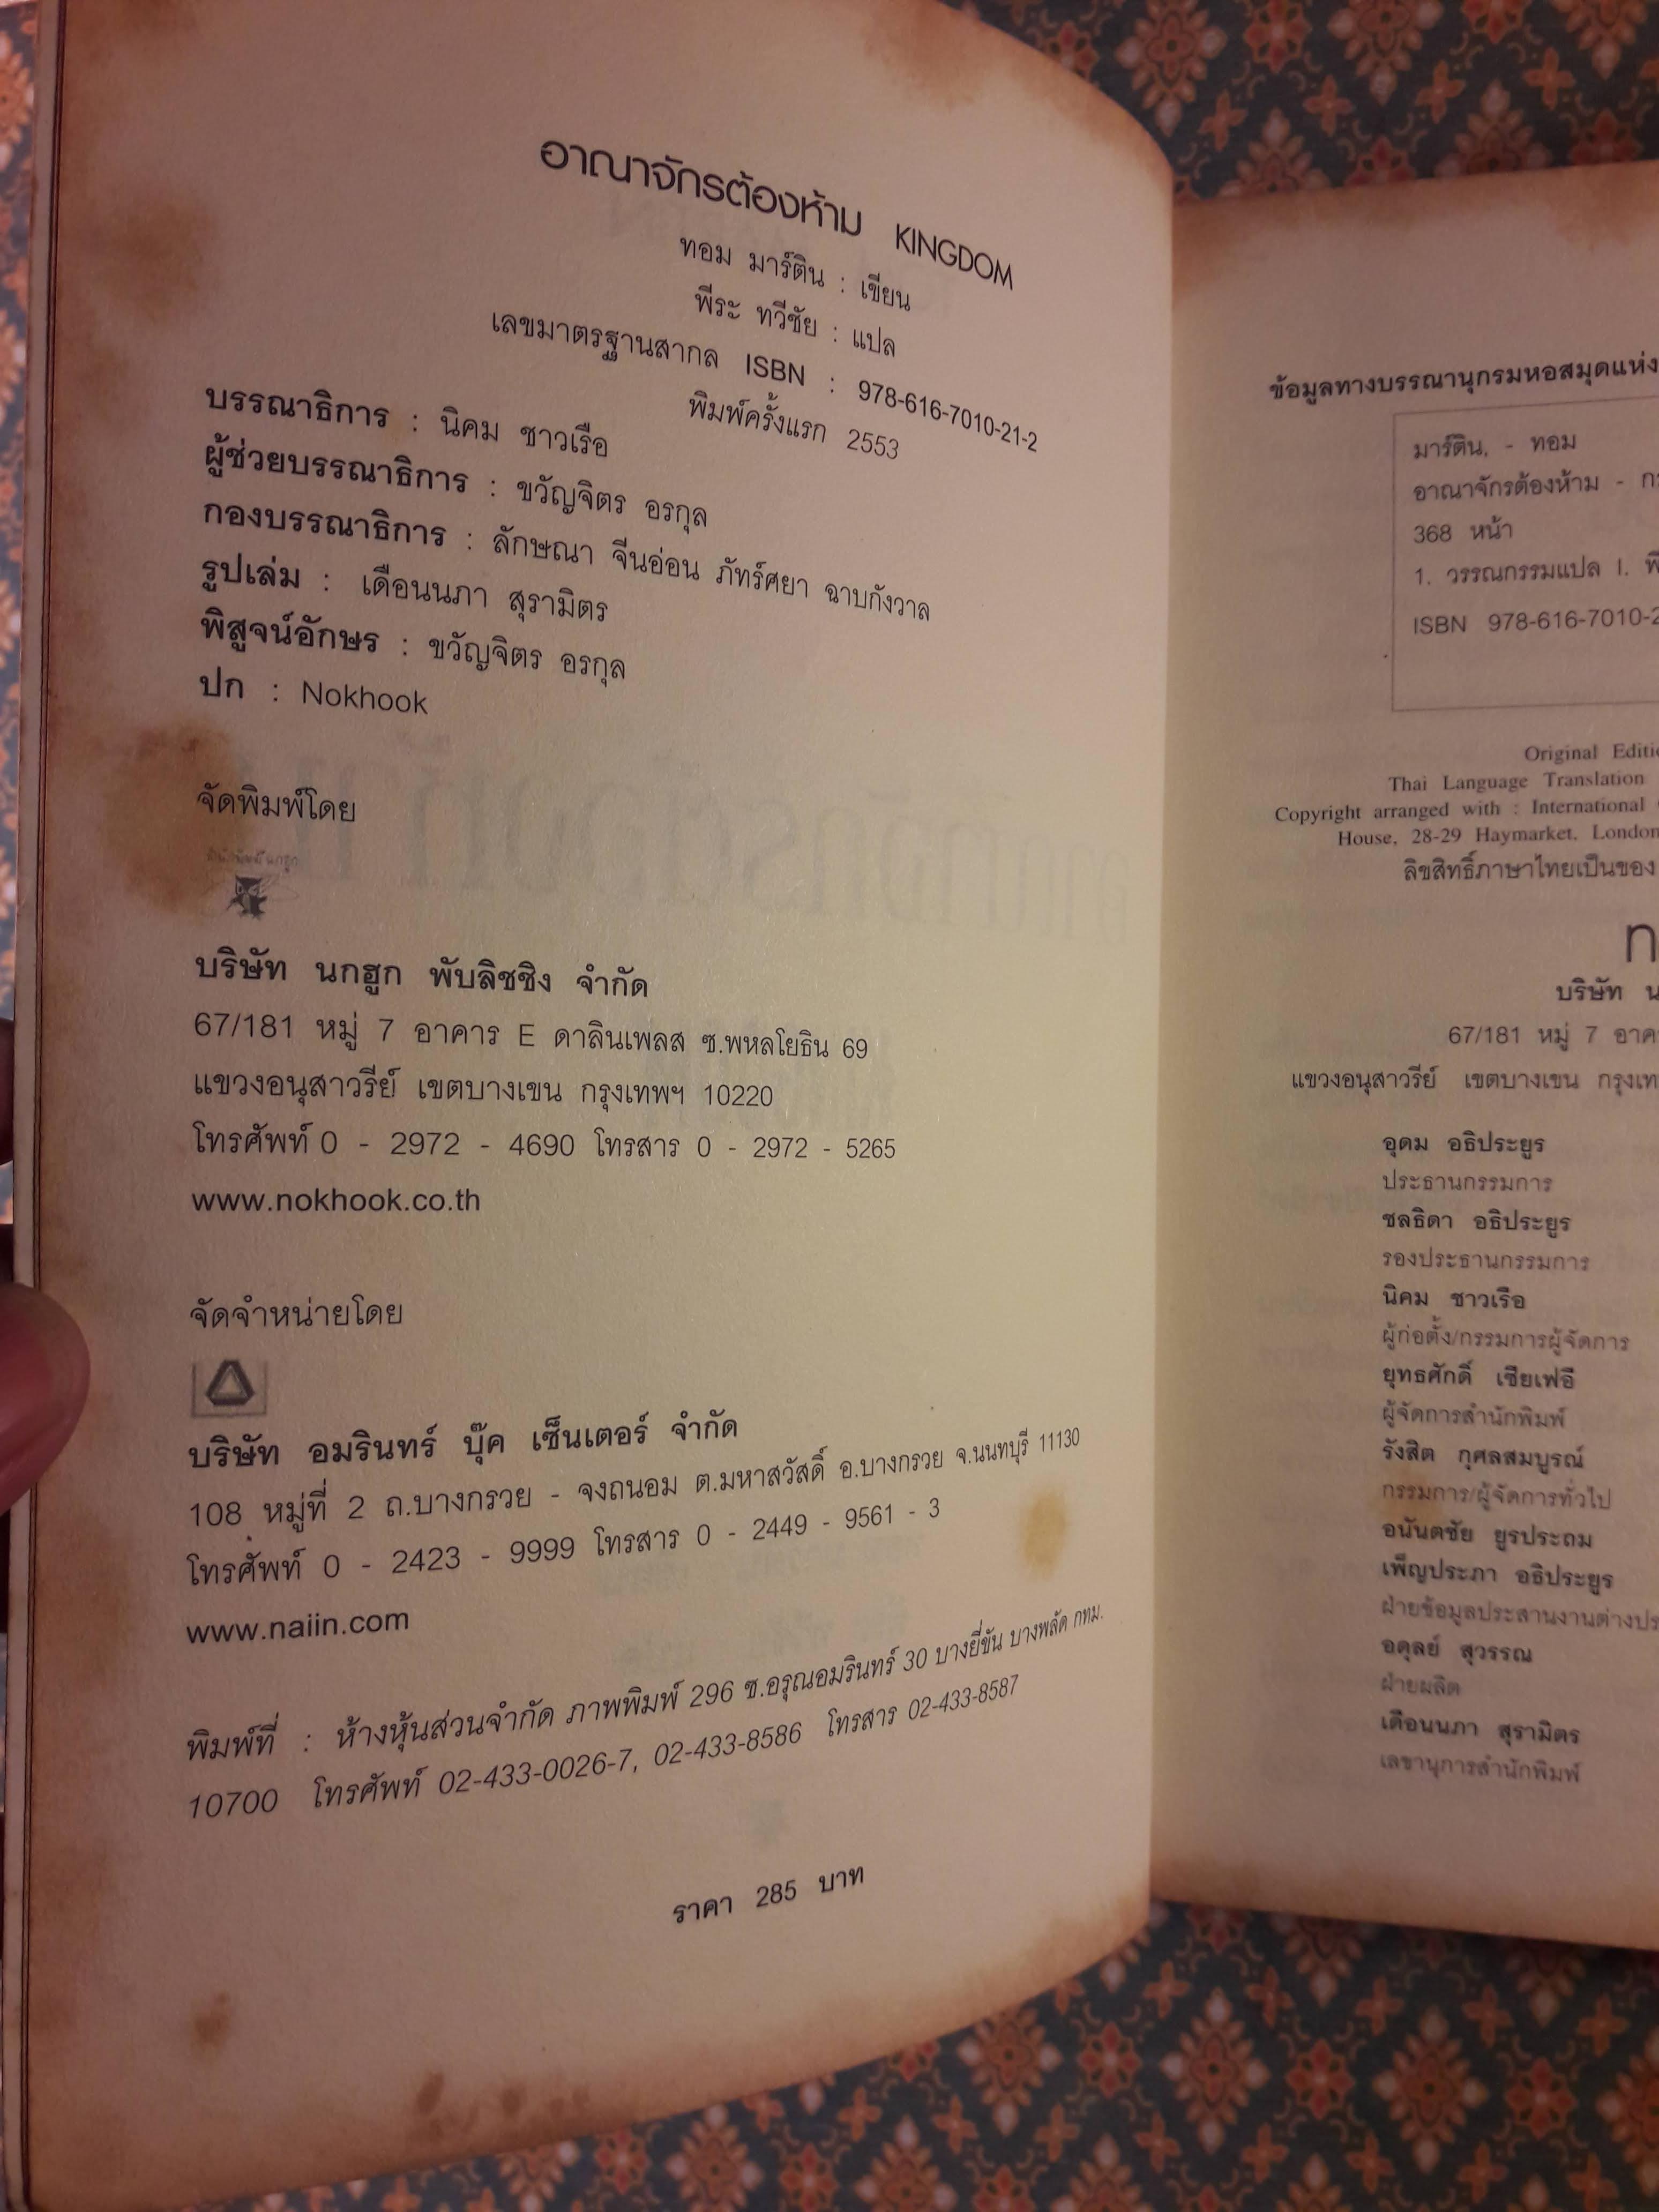 อาณาจักรต้องห้าม KINGDOM
ทอม มาร์ติน : เขียน
พีระ ทวีชัย : แปล
เลขมาตรฐานสากล ISBN : 978-616-7010-21-2
พิมพ์ครั้งแรก 2553
บรรณาธิการ : นิคม ชาวเรือ
ผู้ช่วยบรรณาธิการ : ขวัญจิตร อรกุล
กองบรรณาธิการ : ลักษณา จีนอ่อน ภัทร์ศยา ฉาบกังวาล
รูปเล่ม : เดือนนภา สุรามิตร
พิสูจน์อักษร : ขวัญจิตร อรกุล
ปก : Nokhook
จัดพิมพ์โดย
บริษัท นกฮูก พับลิชชิง จำกัด
67/181 หมู่ 7 อาคาร E ดาลินเพลส ซ.พหลโยธิน 69
แขวงอนุสาวรีย์ เขตบางเขน กรุงเทพฯ 10220
โทรศัพท์ 0 - 2972 - 4690 โทรสาร 0 - 2972 - 5265
www.nokhook.co.th
จัดจำหน่ายโดย
บริษัท อมรินทร์ บุ๊ค เซ็นเตอร์ จำกัด
108 หมู่ที่ 2 ถ.บางกรวย - จงถนอม ต.มหาสวัสดิ์ อ.บางกรวย จ.นนทบุรี 11130
โทรศัพท์ 0 - 2423 - 9999 โทรสาร 0 - 2449 - 9561 - 3
www.naiin.com
พิมพ์ที่ : ห้างหุ้นส่วนจำกัด ภาพพิมพ์ 296 ซ.อรุณอมรินทร์ 30 บางยี่ขัน บางพลัด กทม.
10700 โทรศัพท์ 02-433-0026-7, 02-433-8586 โทรสาร 02-433-8587
ราคา 285 บาท
ข้อมูลทางบรรณานุกรมหอสมุดแห่ง
มาร์ติน, - ทอม
อาณาจักรต้องห้าม -
368 หน้า
1. วรรณกรรมแปล I.
ISBN 978-616-7010-2
Original
Thai Language Translation
Copyright arranged with : International
House, 28-29 Haymarket. London
ลิขสิทธิ์ภาษาไทยเป็นของ
บริษัท
67/181 หมู่ 7
แขวงอนุสาวรีย์ เขตบางเขน
อุดม อธิประยูร
ประธานกรรมการ
ชลธิดา อธิประยูร
รองประธานกรรมการ
นิคม ชาวเรือ
ผู้ก่อตั้ง/กรรมการผู้จัดการ
ยุทธศักดิ์ เซียเฟอี
ผู้จัดการสำนักพิมพ์
รังสิต กุศลสมบูรณ์
กรรมการ/ผู้จัดการทั่วไป
อนันตชัย ยูรประถม
เพ็ญประภา อธิประยูร
ฝ่ายข้อมูลประสานงานต่างปร
อดุลย์ สุวรรณ
ฝ่ายผลิต
เดือนนภา สุรามิตร
เลขานุการสำนักพิมพ์